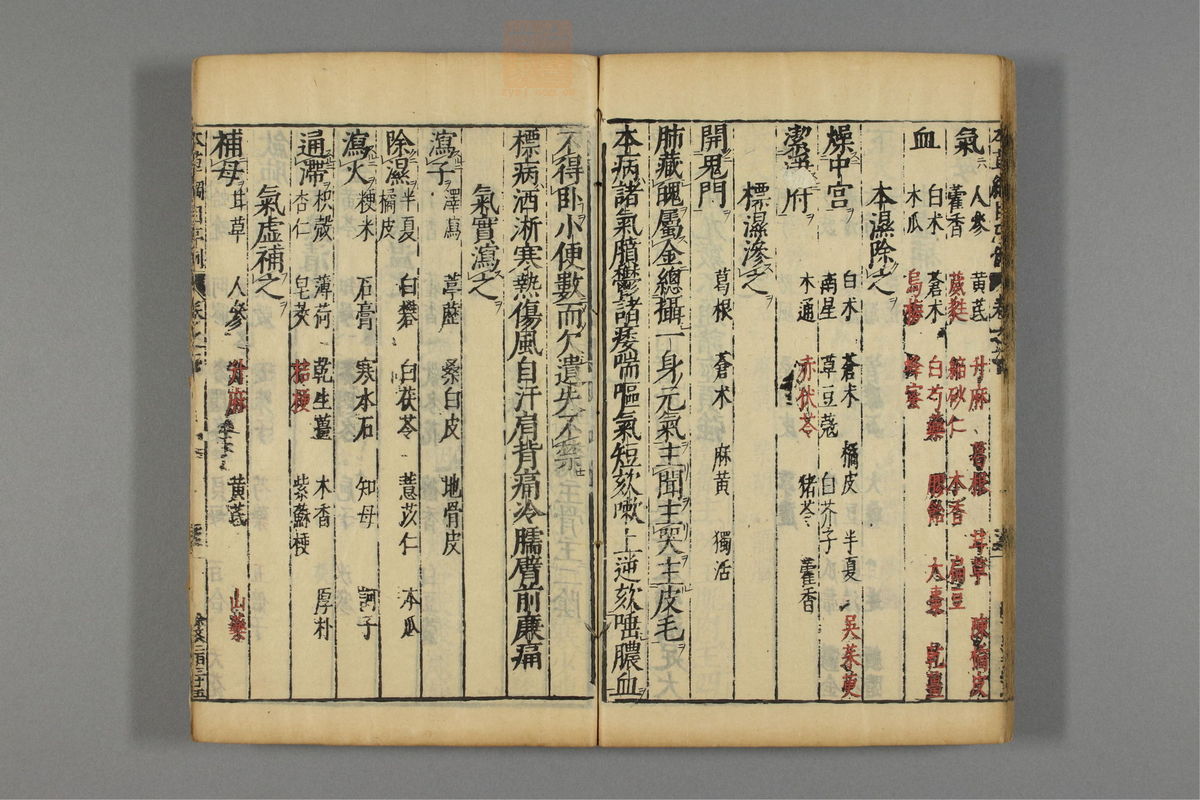 氣 人參 黃芪 升麻 葛根 甘草 陳橘皮
藿香 葳蕤 縮砂仁 木香 扁豆
血 白朮 蒼朮 白芍藥 膠飴 大棗 乾薑
木瓜 烏梅 蜂蜜
本濕除之
燥中宮 白朮 蒼朮 橘皮 半夏 吳茱萸
南星 草豆蔻 白芥子
潔淨府 木通 赤茯苓 猪苓 藿香
標濕滲之
開鬼門 葛根 蒼朮 麻黃 獨活
肺藏魄屬金總攝一身元氣主聞主哭主皮毛
本病諸氣膹鬱諸痿喘嘔氣短欬嗽上逆欬唾膿血
不得臥小便數而欠遺失不禁
標病洒淅寒熱傷風自汗肩背痛冷臑臂前廉痛
氣實瀉之
瀉子 澤瀉 葶藶 桑白皮 地骨皮
除濕 半夏 白礬 白茯苓 薏苡仁 木瓜
橘皮
瀉火 粳米 石膏 寒水石 知母 訶子
通滯 枳殼 薄荷 乾生薑 木香 厚朴
杏仁 皂莢 桔梗 紫蘇梗
氣虛補之
補母 甘草 人參 升麻 黃芪 山藥